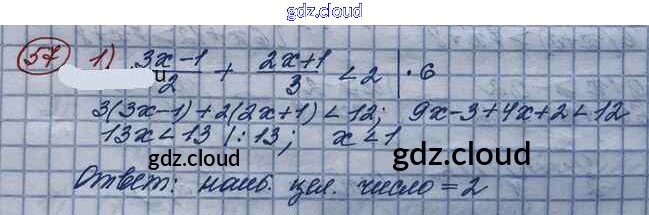 gdz.cloud
57 1) (3x-1)/2 + (2x+1)/3 < 2 | · 6
3(3x-1)+2(2x+1) < 12; 9x-3+4x+2 < 12
13x < 13 | : 13; x < 1
gdz.cloud gdz.cloud
Ответ: наиб. цел. число = 2